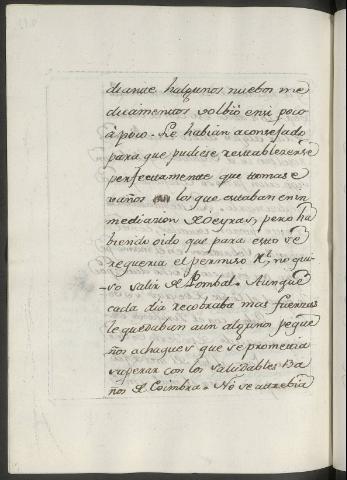 diante halgunos nuebos me
dicamentos volbió en si poco
à poco. Le habian aconsejado
para que pudiese restablecerse
perfectamente que tomase
vaños los que estaban en in
mediacion de Oeyras, pero ha
biendo oido que para esto se
requeria el permiso Rl. no qui-
so salir de Pombal. Aunque
cada dia recobraba mas fuerzas
le quedaban aun algunos peque
ños achaques que se prometia
superar con los saludables Ba
ños de Coimbra. No se atrebia